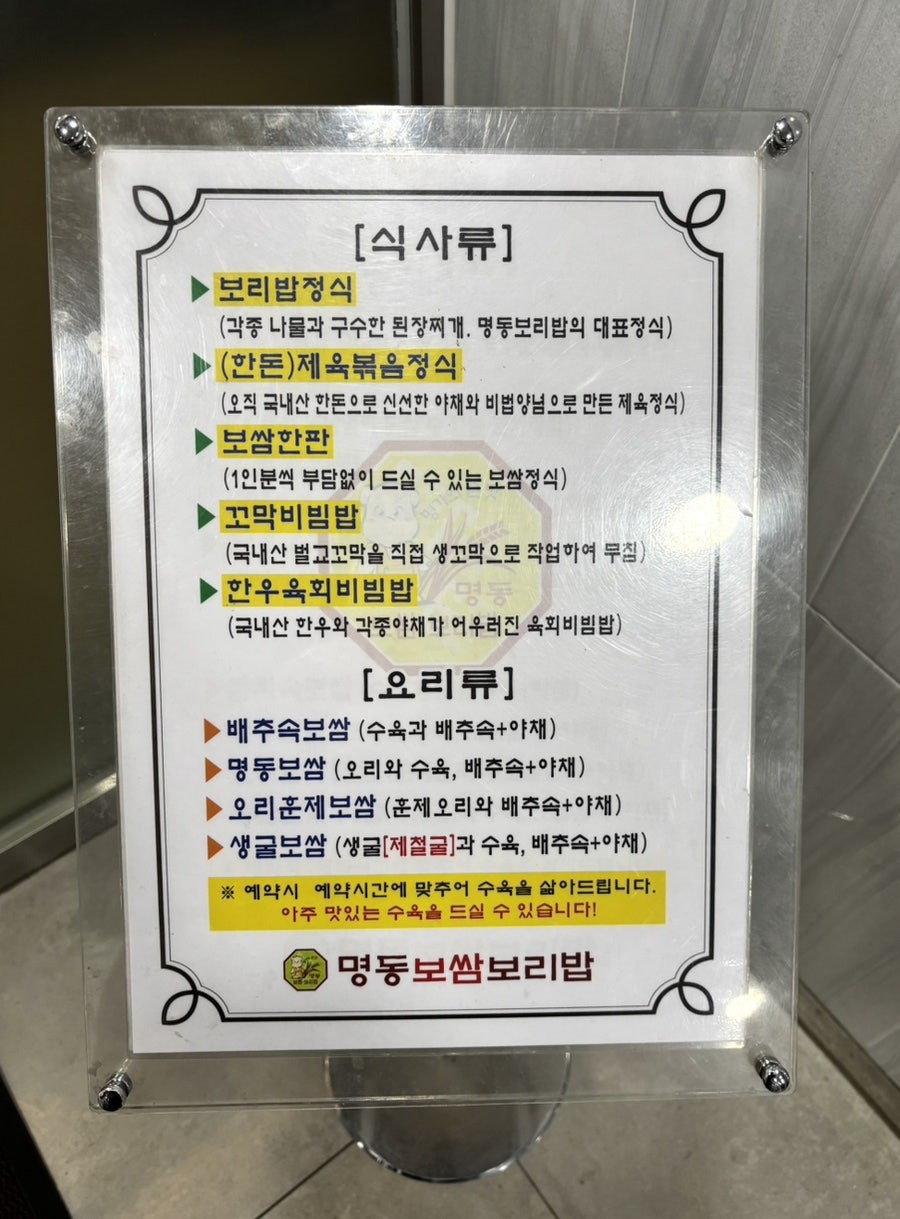 [식사류]
보리밥정식
(각종 나물과 구수한 된장찌개. 명동보리밥의 대표정식)
(한돈)제육볶음정식
(오직 국내산 한돈으로 신선한 야채와 비법양념으로 만든 제육정식)
보쌈한판
(1인분씩 부담없이 드실 수 있는 보쌈정식)
꼬막비빔밥
(국내산 벌교꼬막을 직접 생꼬막으로 작업하여 무침)
한우육회비빔밥
(국내산 한우와 각종야채가 어우러진 육회비빔밥)
명동
[요리류]
배추속보쌈 (수육과 배추속+야채)
명동보쌈 (오리와 수육, 배추속+야채)
오리훈제보쌈 (훈제오리와 배추속+야채)
생굴보쌈 (생굴[제철굴]과 수육, 배추속+야채)
※ 예약시 예약시간에 맞추어 수육을 삶아드립니다.
아주 맛있는 수육을 드실 수 있습니다!
명동보쌈보리밥